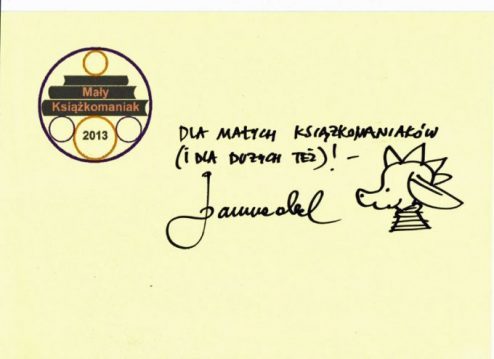 Mały
Książkomaniak
2013
DLA MAŁYCH KSIĄŻKOMANIAKÓW
(I DLA DUŻYCH TEŻ)! –